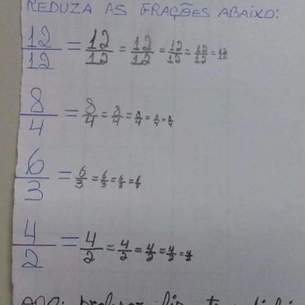 REDUZA AS FRAÇÕES ABAIXO:
12/12 = 12/12 = 12/12 = 12/12 = 12/12 = 12/12
8/4 = 8/4 = 8/4 = 8/4 = 8/4 = 8/4
6/3 = 6/3 = 6/3 = 6/3 = 6/3
4/2 = 4/2 = 4/2 = 4/2 = 4/2 = 4/2